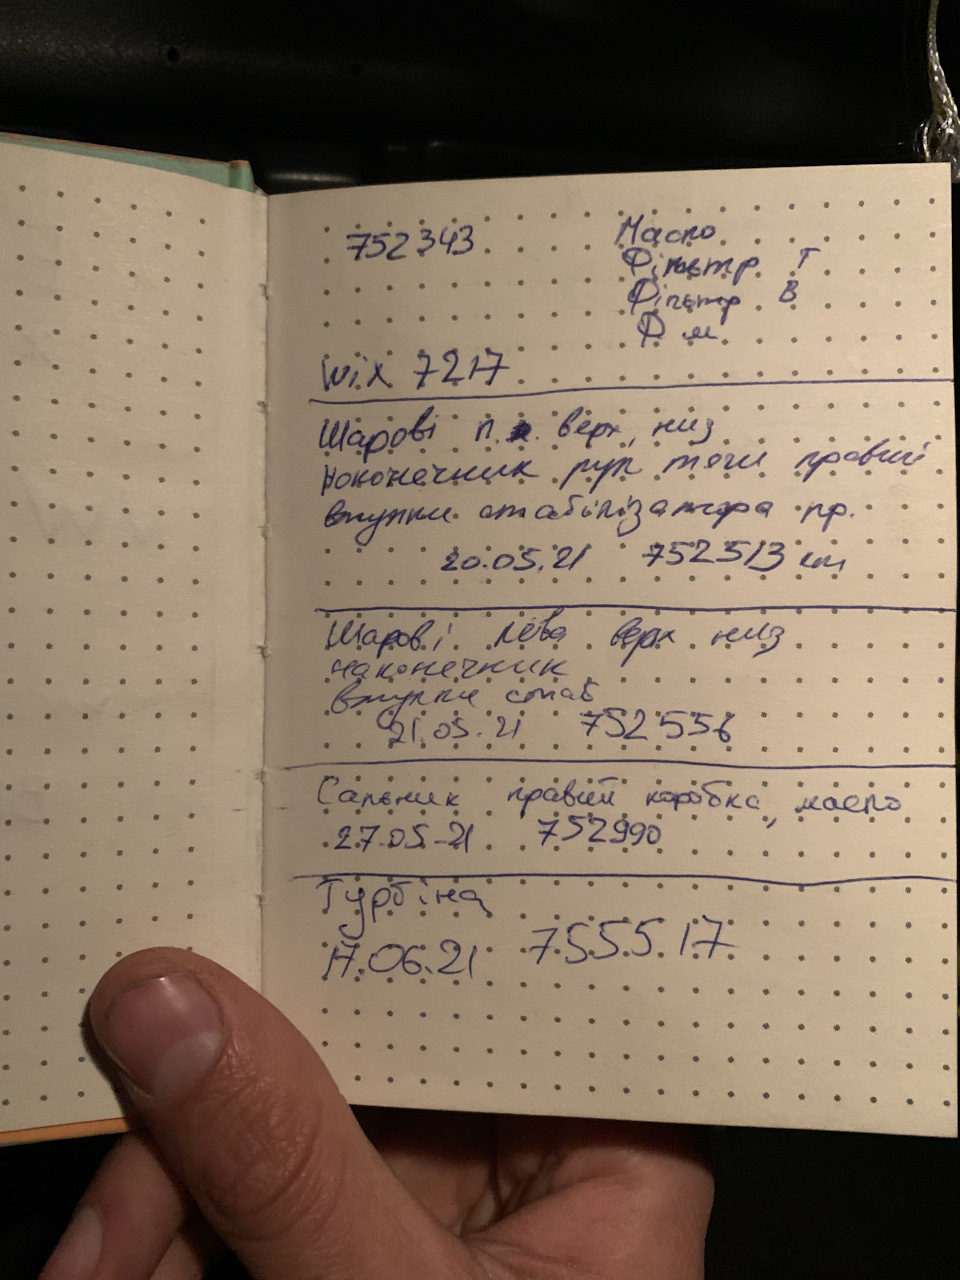 752343 Масло
Фільтр Т
Фільтр В
Ф м
Wix 7217
Шарові п. верх, низ
наконечник рул тяги правий
втулки стабілізатора пр.
20.05.21 752513 км
Шарові ліва верх низ
наконечник
втулки стаб
21.05.21 752556
Сальник правий коробка, масло
27.05-21 752990
Турбіна
17.06.21 755517